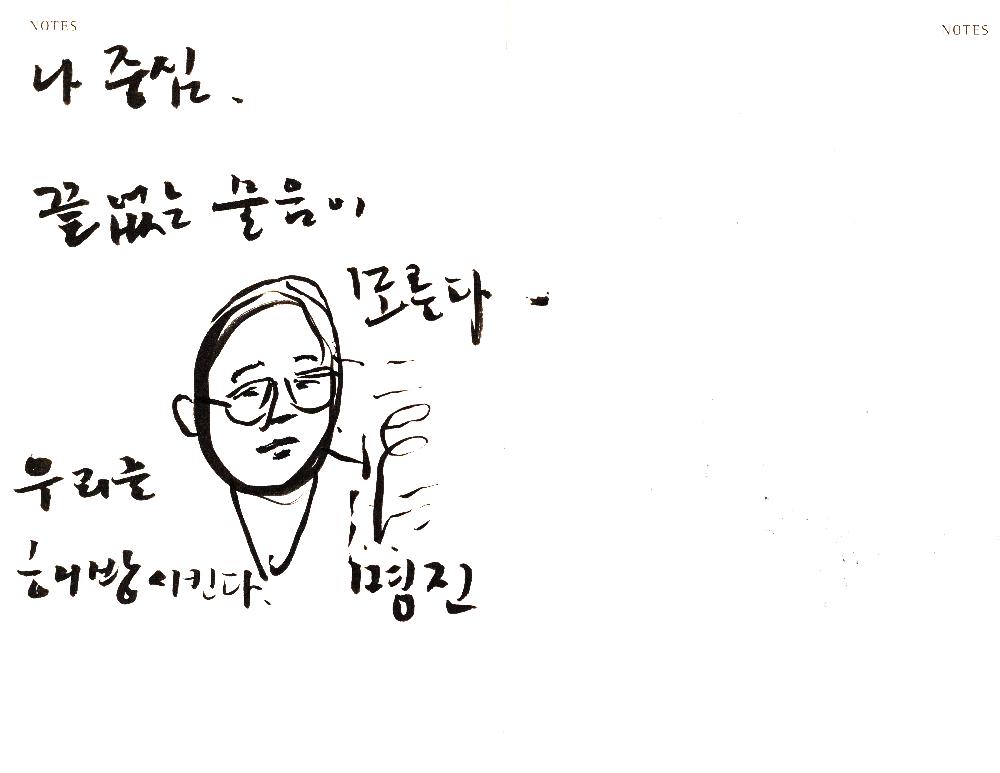 NOTES
NOTES
나 중심.
끝없는 물음이
모른다 -
우리를
해방시킨다.
명진